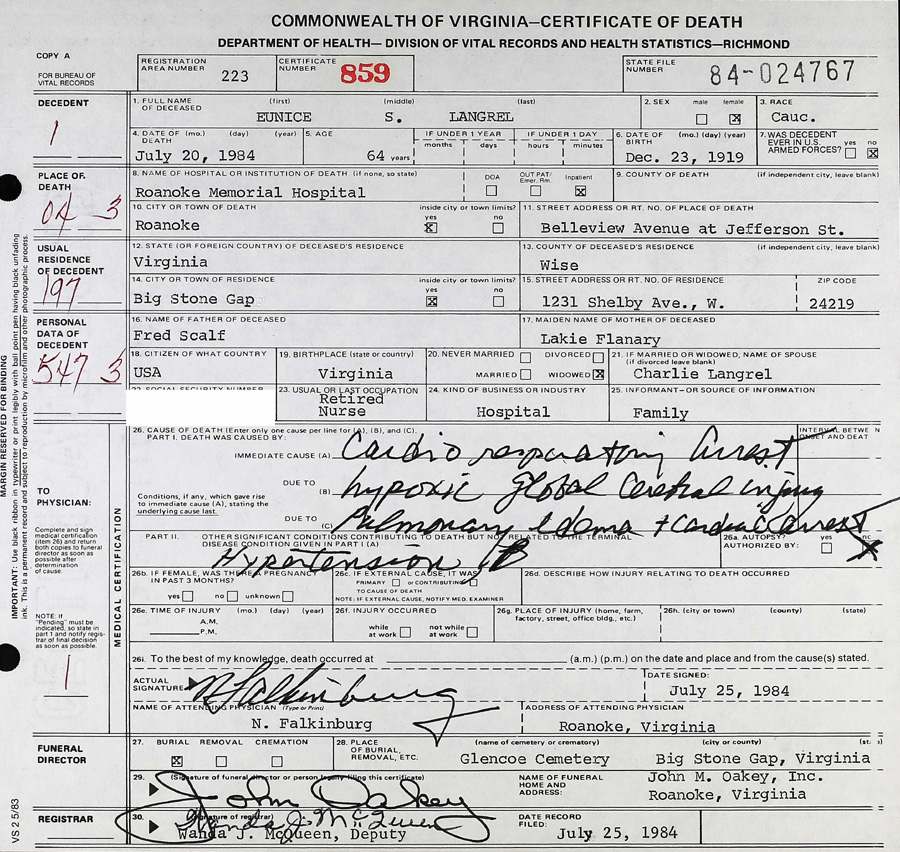 COMMONWEALTH OF VIRGINIA—CERTIFICATE OF DEATH
DEPARTMENT OF HEALTH— DIVISION OF VITAL RECORDS AND HEALTH STATISTICS—RICHMOND
COPY A
FOR BUREAU OF VITAL RECORDS
REGISTRATION AREA NUMBER 223
CERTIFICATE NUMBER 859
STATE FILE NUMBER 84-024767
DECEDENT
1
1. FULL NAME OF DECEASED (first) (middle) (last)
EUNICE S. LANGREL
2. SEX male female ☒
3. RACE
Cauc.
4. DATE OF DEATH (mo.) (day) (year)
July 20, 1984
5. AGE
64 years
IF UNDER 1 YEAR months days
IF UNDER 1 DAY hours minutes
6. DATE OF BIRTH (mo.) (day) (year)
Dec. 23, 1919
7. WAS DECEDENT EVER IN U.S. ARMED FORCES? yes no ☒
PLACE OF DEATH
04 3
8. NAME OF HOSPITAL OR INSTITUTION OF DEATH (if none, so state)
Roanoke Memorial Hospital
DOA OUT PAT/ Emer. Rm. Inpatient ☒
9. COUNTY OF DEATH (if independent city, leave blank)
10. CITY OR TOWN OF DEATH inside city or town limits? yes ☒ no
Roanoke
11. STREET ADDRESS OR RT. NO. OF PLACE OF DEATH
Belleview Avenue at Jefferson St.
USUAL RESIDENCE OF DECEDENT
197
12. STATE (OR FOREIGN COUNTRY) OF DECEASED'S RESIDENCE
Virginia
13. COUNTY OF DECEASED'S RESIDENCE (if independent city, leave blank)
Wise
14. CITY OR TOWN OF RESIDENCE inside city or town limits? yes ☒ no
Big Stone Gap
15. STREET ADDRESS OR RT. NO. OF RESIDENCE
1231 Shelby Ave., W.
ZIP CODE
24219
PERSONAL DATA OF DECEDENT
547 3
16. NAME OF FATHER OF DECEASED
Fred Scalf
17. MAIDEN NAME OF MOTHER OF DECEASED
Lakie Flanary
18. CITIZEN OF WHAT COUNTRY
USA
19. BIRTHPLACE (state or country)
Virginia
20. NEVER MARRIED DIVORCED
MARRIED WIDOWED ☒
21. IF MARRIED OR WIDOWED, NAME OF SPOUSE (if divorced leave blank)
Charlie Langrel
22. SOCIAL SECURITY NUMBER
23. USUAL OR LAST OCCUPATION
Retired
Nurse
24. KIND OF BUSINESS OR INDUSTRY
Hospital
25. INFORMANT—OR SOURCE OF INFORMATION
Family
MARGIN RESERVED FOR BINDING
IMPORTANT: Use black ribbon in typewriter or print legibly with ball point pen having black unfading ink. This is a permanent record and subject to reproduction by microfilm and other photographic process.
TO PHYSICIAN:
Complete and sign medical certification (item 26) and return both copies to funeral director as soon as possible after determination of cause.
NOTE: If "Pending" must be indicated, so state in part 1 and notify registrar of final decision as soon as possible.
1
MEDICAL CERTIFICATION
26. CAUSE OF DEATH (Enter only one cause per line for (A), (B), and (C).
PART I. DEATH WAS CAUSED BY:
INTERVAL BETWEEN ONSET AND DEAT
IMMEDIATE CAUSE (A) Cardio respiratory Arrest
DUE TO (B) hypoxic global Cerebral injury
Conditions, if any, which gave rise to immediate cause (A), stating the underlying cause last.
DUE TO (C) Pulmonary Edema + cardiac arrest
PART II. OTHER SIGNIFICANT CONDITIONS CONTRIBUTING TO DEATH BUT NOT RELATED TO THE TERMINAL DISEASE CONDITION GIVEN IN PART I (A)
Hypertension,
26a. AUTOPSY? AUTHORIZED BY: yes no X
26b. IF FEMALE, WAS THERE A PREGNANCY IN PAST 3 MONTHS?
yes no unknown
26c. IF EXTERNAL CAUSE, IT WAS
PRIMARY or CONTRIBUTING
TO CAUSE OF DEATH
NOTE: IF EXTERNAL CAUSE, NOTIFY MED. EXAMINER
26d. DESCRIBE HOW INJURY RELATING TO DEATH OCCURRED
26e. TIME OF INJURY (mo.) (day) (year)
A.M.
P.M.
26f. INJURY OCCURRED
while at work not while at work
26g. PLACE OF INJURY (home, farm, factory, street, office bldg., etc.)
26h. (city or town) (county) (state)
26i. To the best of my knowledge, death occurred at (a.m.) (p.m.) on the date and place and from the cause(s) stated.
ACTUAL SIGNATURE N Falkinburg
DATE SIGNED:
July 25, 1984
NAME OF ATTENDING PHYSICIAN (Type or Print)
N. Falkinburg
ADDRESS OF ATTENDING PHYSICIAN
Roanoke, Virginia
FUNERAL DIRECTOR
27. BURIAL ☒ REMOVAL CREMATION
28. PLACE OF BURIAL, REMOVAL, ETC.
(name of cemetery or crematory) (city or county) (st
Glencoe Cemetery Big Stone Gap, Virginia
29. (Signature of funeral director or person legally filing this certificate)
John Oakey
NAME OF FUNERAL HOME AND ADDRESS:
John M. Oakey, Inc.
Roanoke, Virginia
REGISTRAR
30. (Signature of registrar)
Wanda J. McQueen
Wanda J. McQueen, Deputy
DATE RECORD FILED:
July 25, 1984
VS 2 5/83